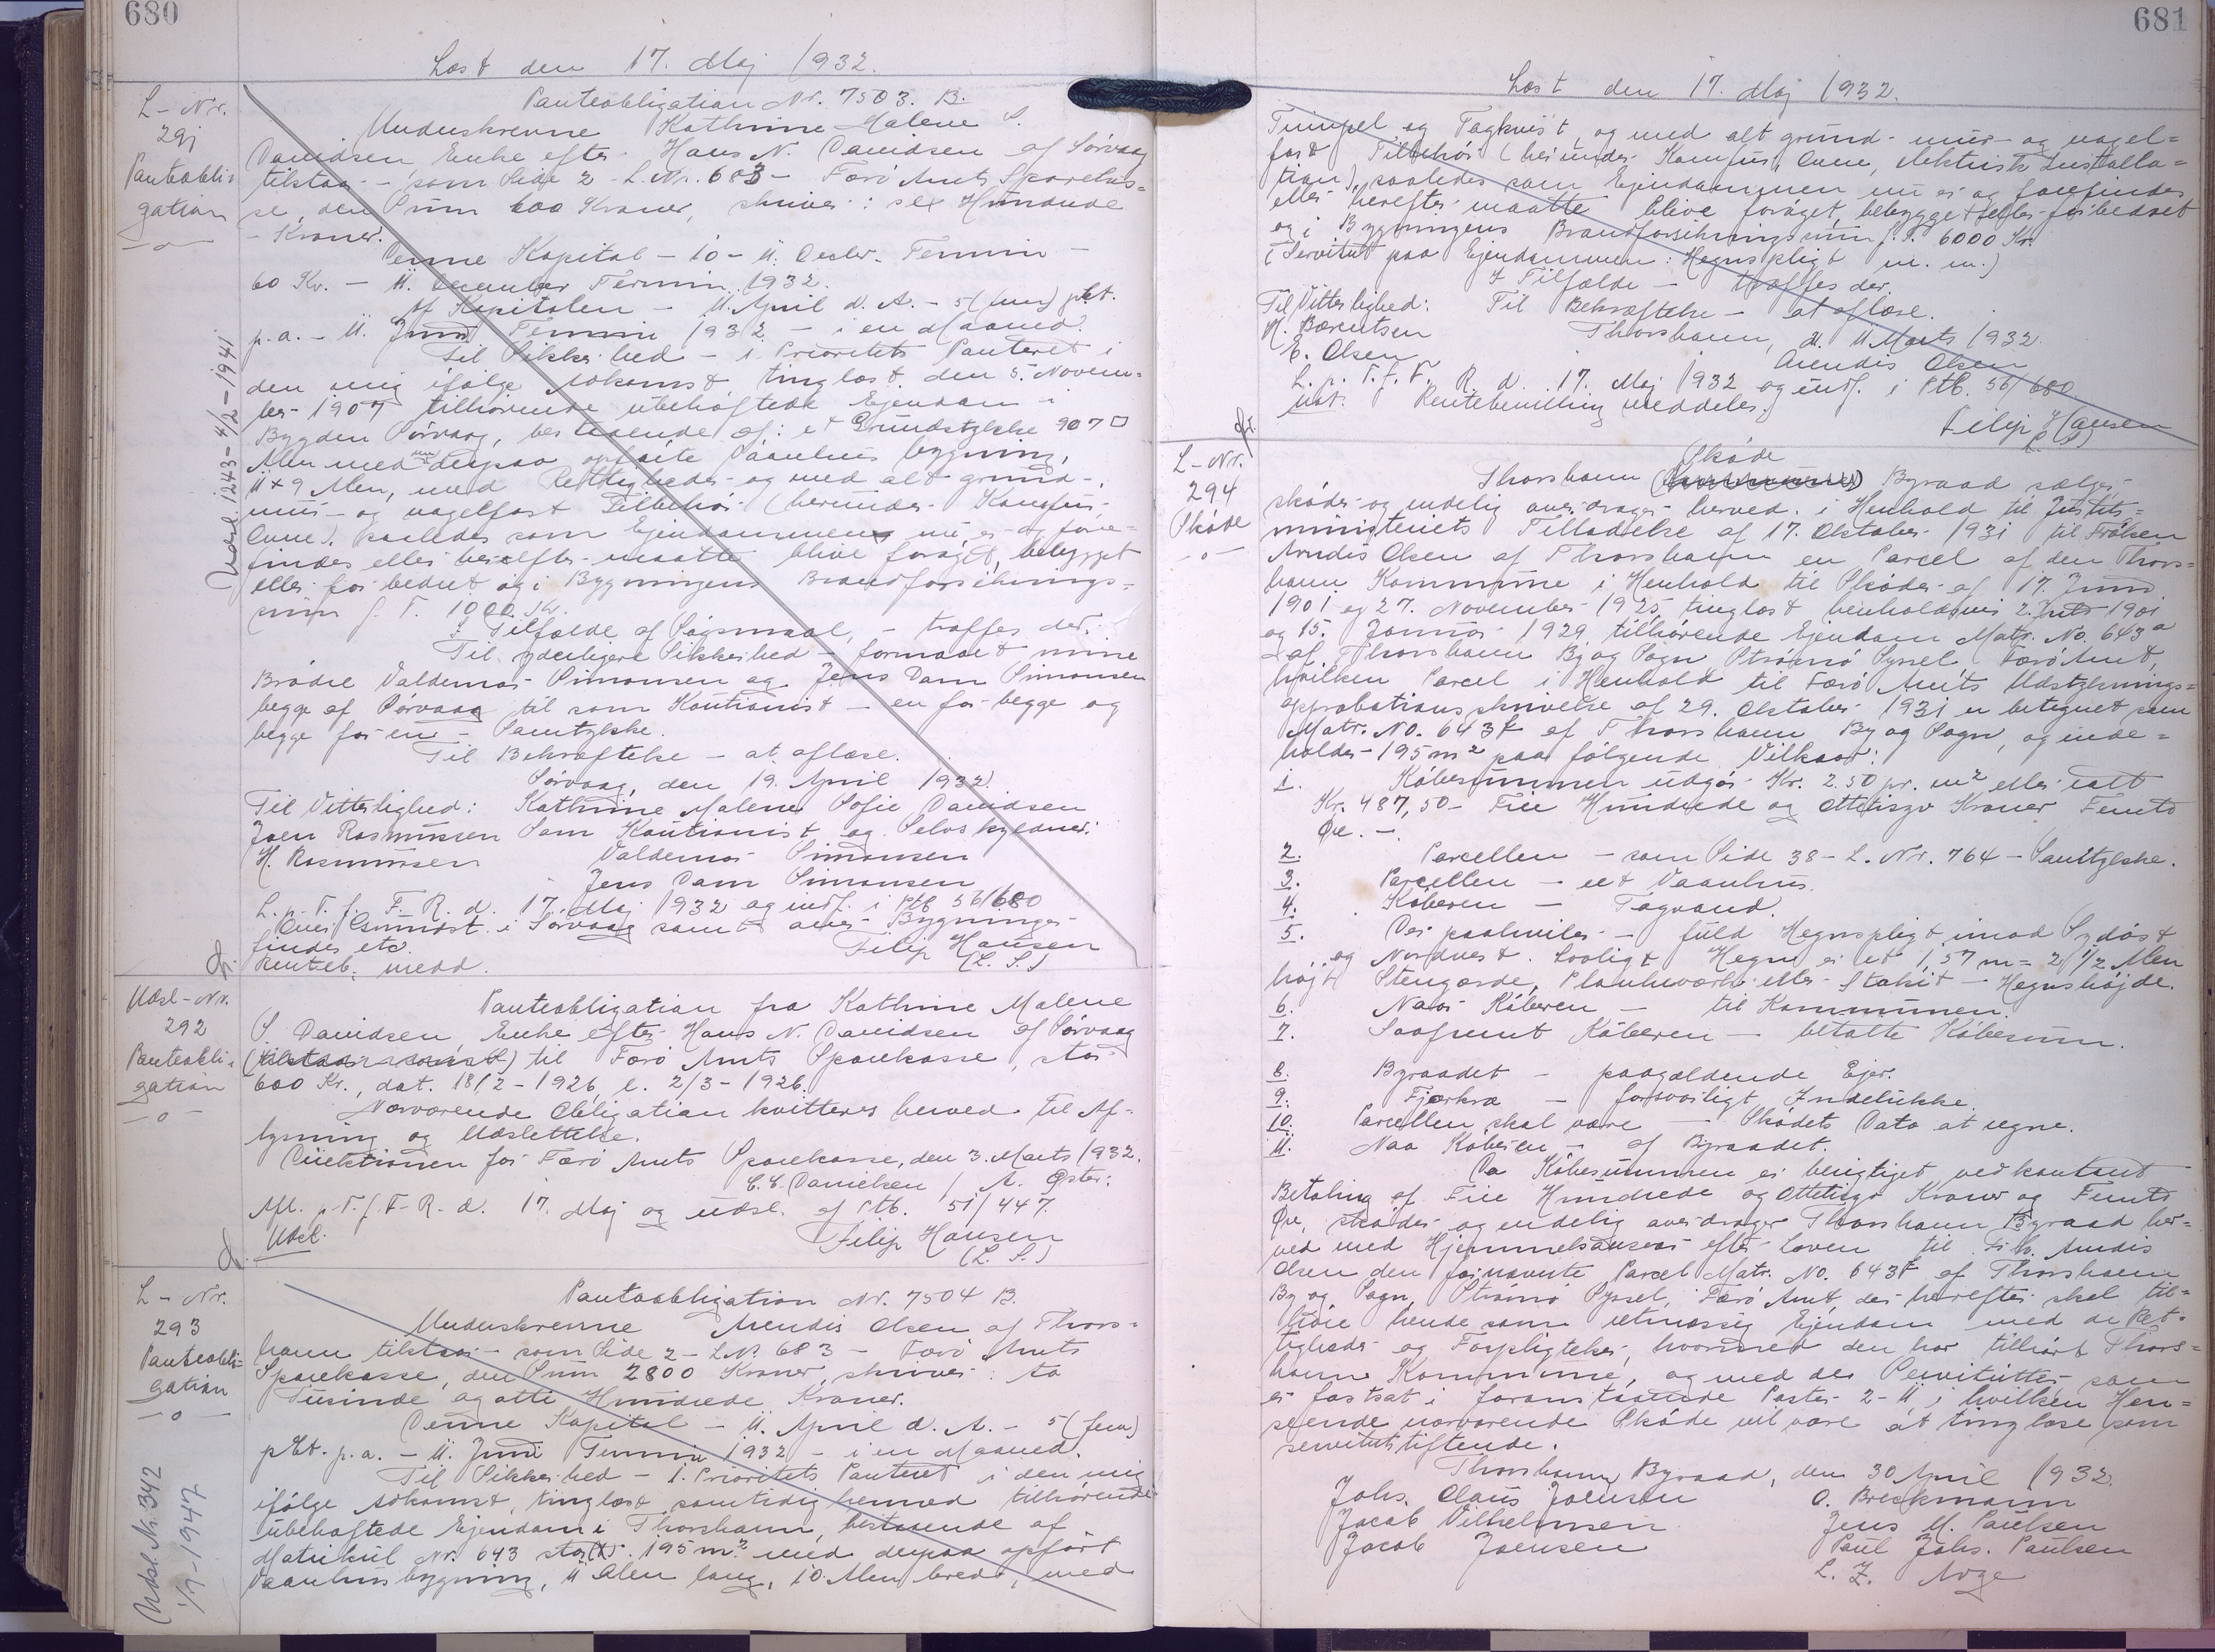 680
Læst den 17. Maj 1932.
L-Nr.
291
Panteobli-
gation
Udsl. 1243-4/2-1941
Panteobligation Nr. 7503. B.
Underskrevne Kathrine Malene S.
Davidsen Enke efter Hans N. Davidsen af Sørvaag
tilstaar - som Side 2 - L.Nr. 683 - Færø Amts Sparekas-
se, den Sum 600 Kroner, skriver: sex Hundrede
- Kroner.
Denne Kapital - 10 - 11. Decbr. Termin -
60 Kr. - 11. December Termin 1932.
Af Kapitalen - 11. April d. A. - 5 (fem) pCt.
p.a. - 11. Juni Termin 1932 - i en Maaned.
Til Sikkerhed - 1. Prioritets Panteret i
den mig ifølge Adkomst tinglæst den 5. Novem-
ber 1907 tilhørende ubehæftede Ejendom i
Bygden Sørvaag, bestaaende af: et Grundstykke 907 □
Alen med derpaa opførte Vaanhus bygning,
11 x 9 Alen, med Rettigheder og med alt grund-,
mur- og nagelfast Tilbehør (herunder Komfur,
Ovne) saaledes som Ejendommen nu er og fore-
findes eller herefter maatte blive forøget, bebygget
eller forbedret og i Bygningens Brandforsikrings-
sum f. T. 1000 Kr.
I Tilfælde af Søgsmaal, - træffes der.
Til yderligere Sikkerhed - formaaet mine
Brødre Valdemar Simonsen og Jens Dam Simonsen
begge af Sørvaag til som Kautionist - en for begge og
begge for en - Samtykke.
Til Bekræftelse - at aflæse.
Sørvaag, den 19. April 1932.
Til Vitterlighed: Kathrine Malene Sofie Davidsen
Joen Rasmussen Som Kautionist og Selvskyldner:
H. Rasmussen Valdemar Simonsen
Jens Dam Simonsen
L. p. T. f. F. R. d. 17. Maj 1932 og indf. i Ptb. 56/680
Over Grundst. i Sørvaag samt over Bygninger
findes etc. Filip Hansen
Renteb. medd. (L. S.)
Udsl-Nr.
292
Panteobli-
gation
Panteobligation fra Kathrine Malene
S. Davidsen Enke efter Hans N. Davidsen af Sørvaag
til Færø Amts Sparekasse, stor
600 Kr., dat. 18/2-1926, l. 2/3-1926.
Nærværende Obligation kvitteres herved til Af-
lysning og Udslettelse.
Direktionen for Færø Amts Sparekasse, den 3. Marts 1932.
C.C. Danielsen / A. Øster.
Afl. p. T. f. F. R. d. 17. Maj og udsl. af Ptb. 51/447
Udsl. Filip Hansen
(L. S.)
L-Nr.
293
Panteobli-
gation
Udsl. Nr. 342
1/7-1947
Panteobligation Nr. 7504 B.
Underskrevne Arendis Olsen af Thors-
havn tilstaar - som Side 2 - L.Nr. 683 - Færø Amts
Sparekasse, den Sum 2800 Kroner, skriver: to
Tusinde og otte Hundrede Kroner.
Denne Kapital - 11. April d. A. - 5 (fem)
pCt. p.a. - 11. Juni Termin 1932 - i en Maaned.
Til Sikkerhed - 1. Prioritets Panteret i den mig
ifølge Adkomst, tinglæst samtidig hermed tilhørende
ubehæftede Ejendom i Thorshavn, bestaaende af
Matrikul Nr. 643 stor 195 m² med derpaa opført
Vaanhusbygning, 11 Alen lang, 10 Alen bred, med
681
Læst den 17. Maj 1932.
Timpel og Tagkvist, og med alt grund- mur- og nagel-
fast Tilbehør (herunder Komfur, Ovne, elektrisk Installa-
tion), saaledes som Ejendommen nu er og forefindes
eller herefter maatte blive forøget, bebygget eller forbedret
og i Bygningens Brandforsikringssum f. T. 6000 Kr.
(Servitut paa Ejendommen: Hegnspligt m. m.)
I Tilfælde - træffes der.
Til Vitterlighed: Til Bekræftelse - at aflæse.
M. Bærentsen Thorshavn, d. 11 Marts 1932.
E. Olsen Arendis Olsen
L. p. T. f. F. R. d. 17. Maj 1932 og indf. i Ptb. 56/680.
Rentebevilling meddeles.
Filip Hansen
(L. S.)
L-Nr.
294
Skøde
Skøde
Thorshavn Byraad sælger
skøder og endelig overdrager herved i Henhold til Justits-
ministeriets Tilladelse af 17. Oktober 1931 til Frøken
Arndis Olsen af Thorshavn en Parcel af den Thors-
havn Kommune i Henhold til Skøder af 17. Juni
1901 og 27. November 1925, tinglæst henholdsvis 2. Juli 1901
og 15. Januar 1929 tilhørende Ejendom Matr. No. 643a
af Thorshavn By og Sogn, Strømø Syssel, Færø Amt,
hvilken Parcel i Henhold til Færø Amts Udstyknings-
approbationsskrivelse af 29. Oktober 1931 er betegnet som
Matr. No. 643k af Thorshavn By og Sogn, og inde-
holder 195 m² paa følgende Vilkaar:
1. Købesummen udgør Kr. 2.50 pr. m² eller ialt
Kr. 487,50 - Fire Hundrede og Ottetisyv Kroner Femti
Øre. -
2. Parcellen - som Side 38 - L. Nr. 764 - Samtykke.
3. Parcellen - eet Vaanhus.
4. Køberen - Tagvand.
5. Der paahviler - fuld Hegnspligt imod Sydøst
og Nordvest. Lovligt Hegn er et 1,57 m = 2 1/2 Alen
højt Stengærde, Plankeværk eller Stakit - Hegnshøjde.
6. Naar Køberen - til Kommunen.
7. Saafremt Køberen - betalte Købesum.
8. Byraadet - paagældende Ejer.
9. Fjerkræ - forsvarligt Indelukke.
10. Parcellen skal være - Skødets Dato at regne.
11. Naar Køberen - af Byraadet.
Da Købesummen er berigtiget ved kontant
Betaling af Fire Hundrede og Ottetisyv Kroner og Femti
Øre, skøder og endelig overdrager Thorshavn Byraad her-
ved med Hjemmelsansvar efter Loven til Frk. Arndis
Olsen den fornævnte Parcel Matr. No. 643k af Thorshavn
By og Sogn, Strømø Syssel, Færø Amt, der herefter skal til-
høre hende som retmæssig Ejendom med de Ret-
tigheder og Forpligtelser, hvormed den har tilhørt Thors-
havn Kommune, og med de Servitutter som
er fastsat i foranstaaende Poster 2-11, i hvilken Hen-
seende nærværende Skøde vil være at tinglæse som
servitutstiftende.
Thorshavn Byraad, den 30 April 1932.
Johs. Claus Joensen O. Breckmann
Jacob Vilhelmsen Jens M. Paulsen
Jacob Joensen Poul Johs. Paulsen
L. Z. Arge